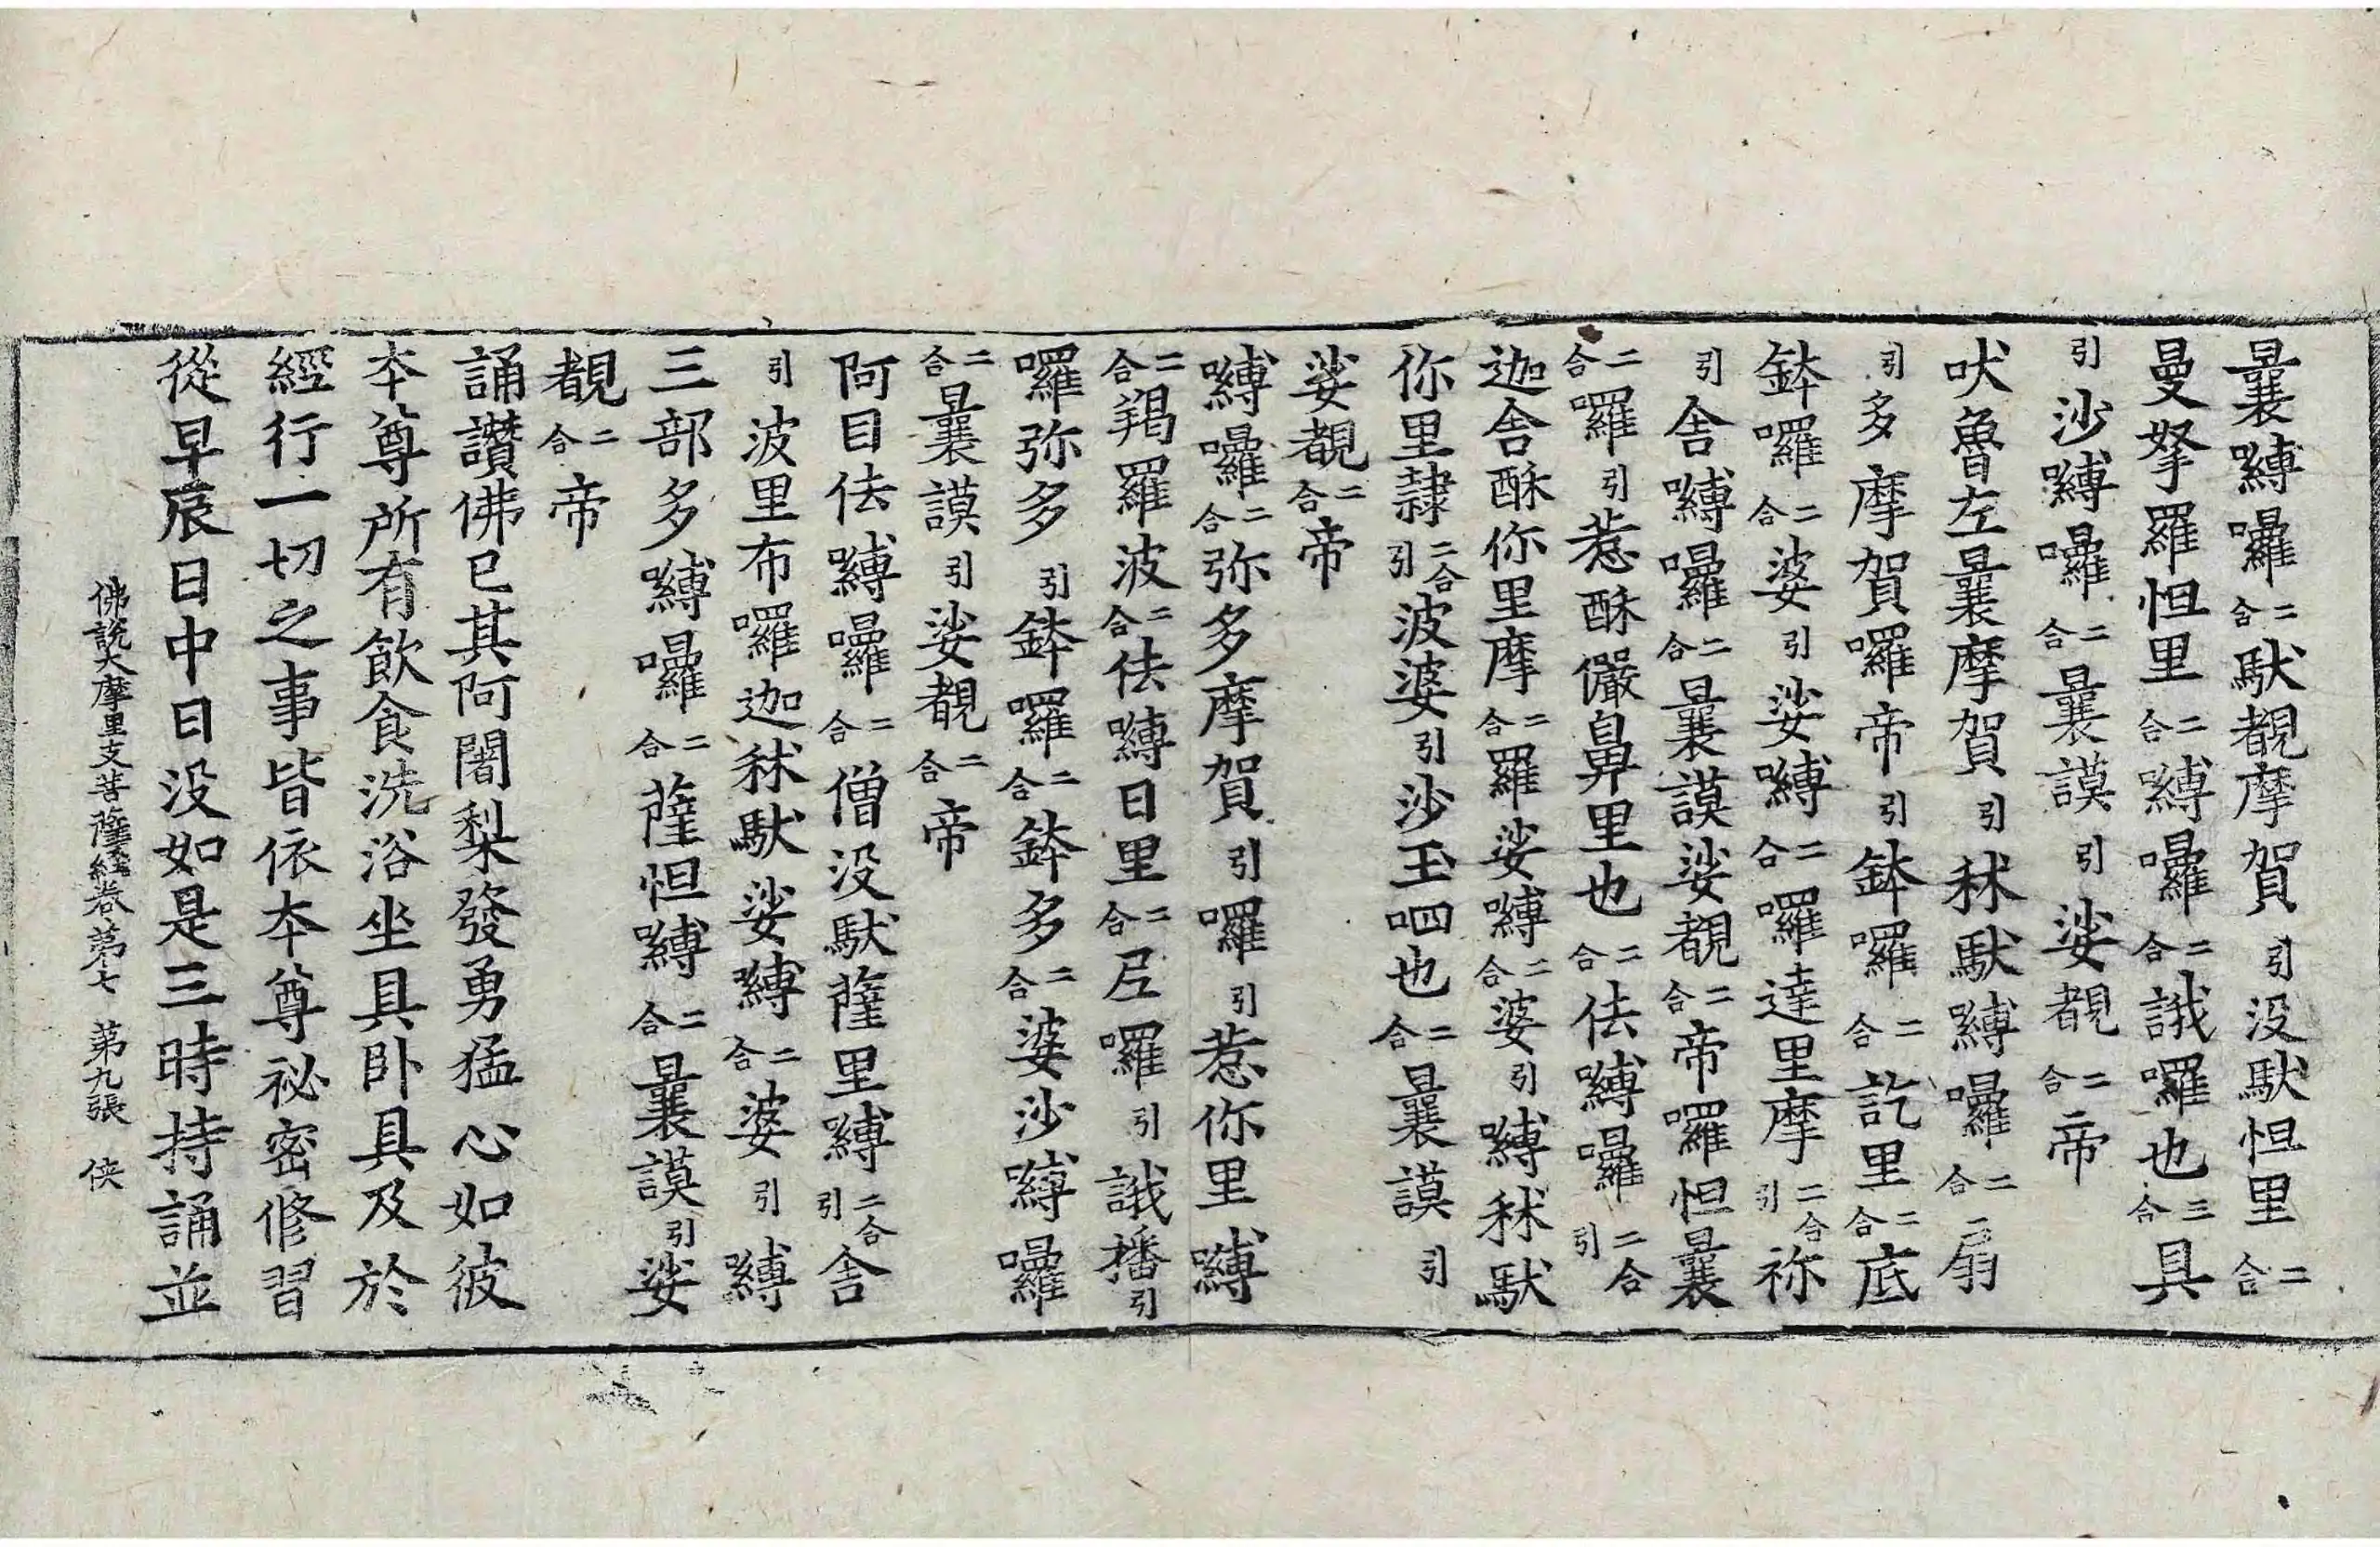 曩嚩囉二合馱覩摩賀引没馱怛里二合
曼拏羅怛里二合嚩囉二合誐囉也三合具
引沙嚩囉二合曩謨引娑覩二合帝
吠魯左曩摩賀引秫馱嚩囉二合扇
引多摩賀囉帝引鉢囉二合訖里二合底
鉢囉二合婆引娑嚩二合囉達里摩二合引祢
引舍嚩囉二合曩謨娑覩二合帝囉怛曩
二合羅引惹酥儼鼻里也二合佉嚩囉二合引
迦舍酥你里摩二合羅娑嚩二合婆引嚩秫馱
你里隸二合引波婆引沙玉呬也二合曩謨引
娑覩二合帝
嚩囉二合弥多摩賀引囉引惹你里嚩
二合羯羅波二合佉嚩日里二合𡰱囉引誐播引
囉弥多引鉢囉二合鉢多二合婆沙嚩囉
二合曩謨引娑覩二合帝
阿目佉嚩囉二合僧没馱薩里嚩二合引舍
引波里布囉迦秫馱娑嚩二合婆引嚩
三部多嚩囉二合薩怛嚩二合曩謨引娑
覩二合帝
誦讃佛已其阿闍梨發勇猛心如彼
本尊所有飲食洗浴坐具卧具及於
經行一切之事皆依本尊祕密修習
從早辰日中日没如是三時持誦並
佛説大摩里支菩薩經卷第七 第九張 俠